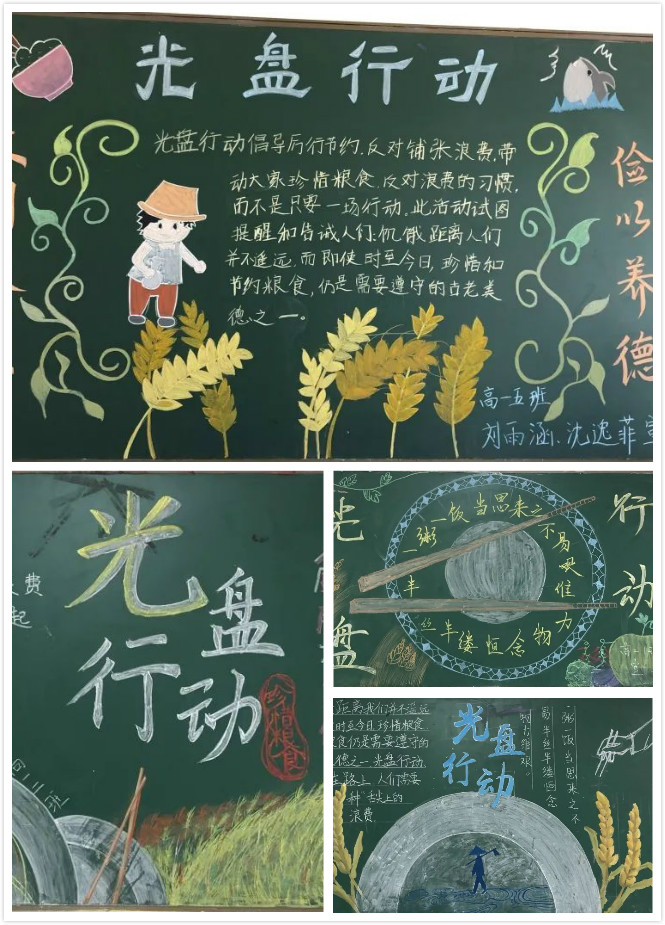 光盘行动
光盘行动倡导厉行节约,反对铺张浪费,带
动大家珍惜粮食,反对浪费的习惯,
而不是只要一场行动.此活动试图
提醒和告诫人们:饥饿距离人们
并不遥远,而即使时至今日,珍惜和
节约粮食,仍是需要遵守的古老美
德之一。
俭以养德
高一五班
刘雨涵、沈逸菲 宣
光盘
行动
珍惜粮食
费
起
二班
光盘
行动
一粥一饭当思来之不易
半丝半缕恒念物力唯
高一
距离我们并不遥远
时至今日珍惜粮食
食仍是需要遵守的
德之一光盘行动
路上人们需要
种舌尖上的
浪费
光盘
行动
一粥一饭当思来之不
易半丝半缕恒念
物力维艰